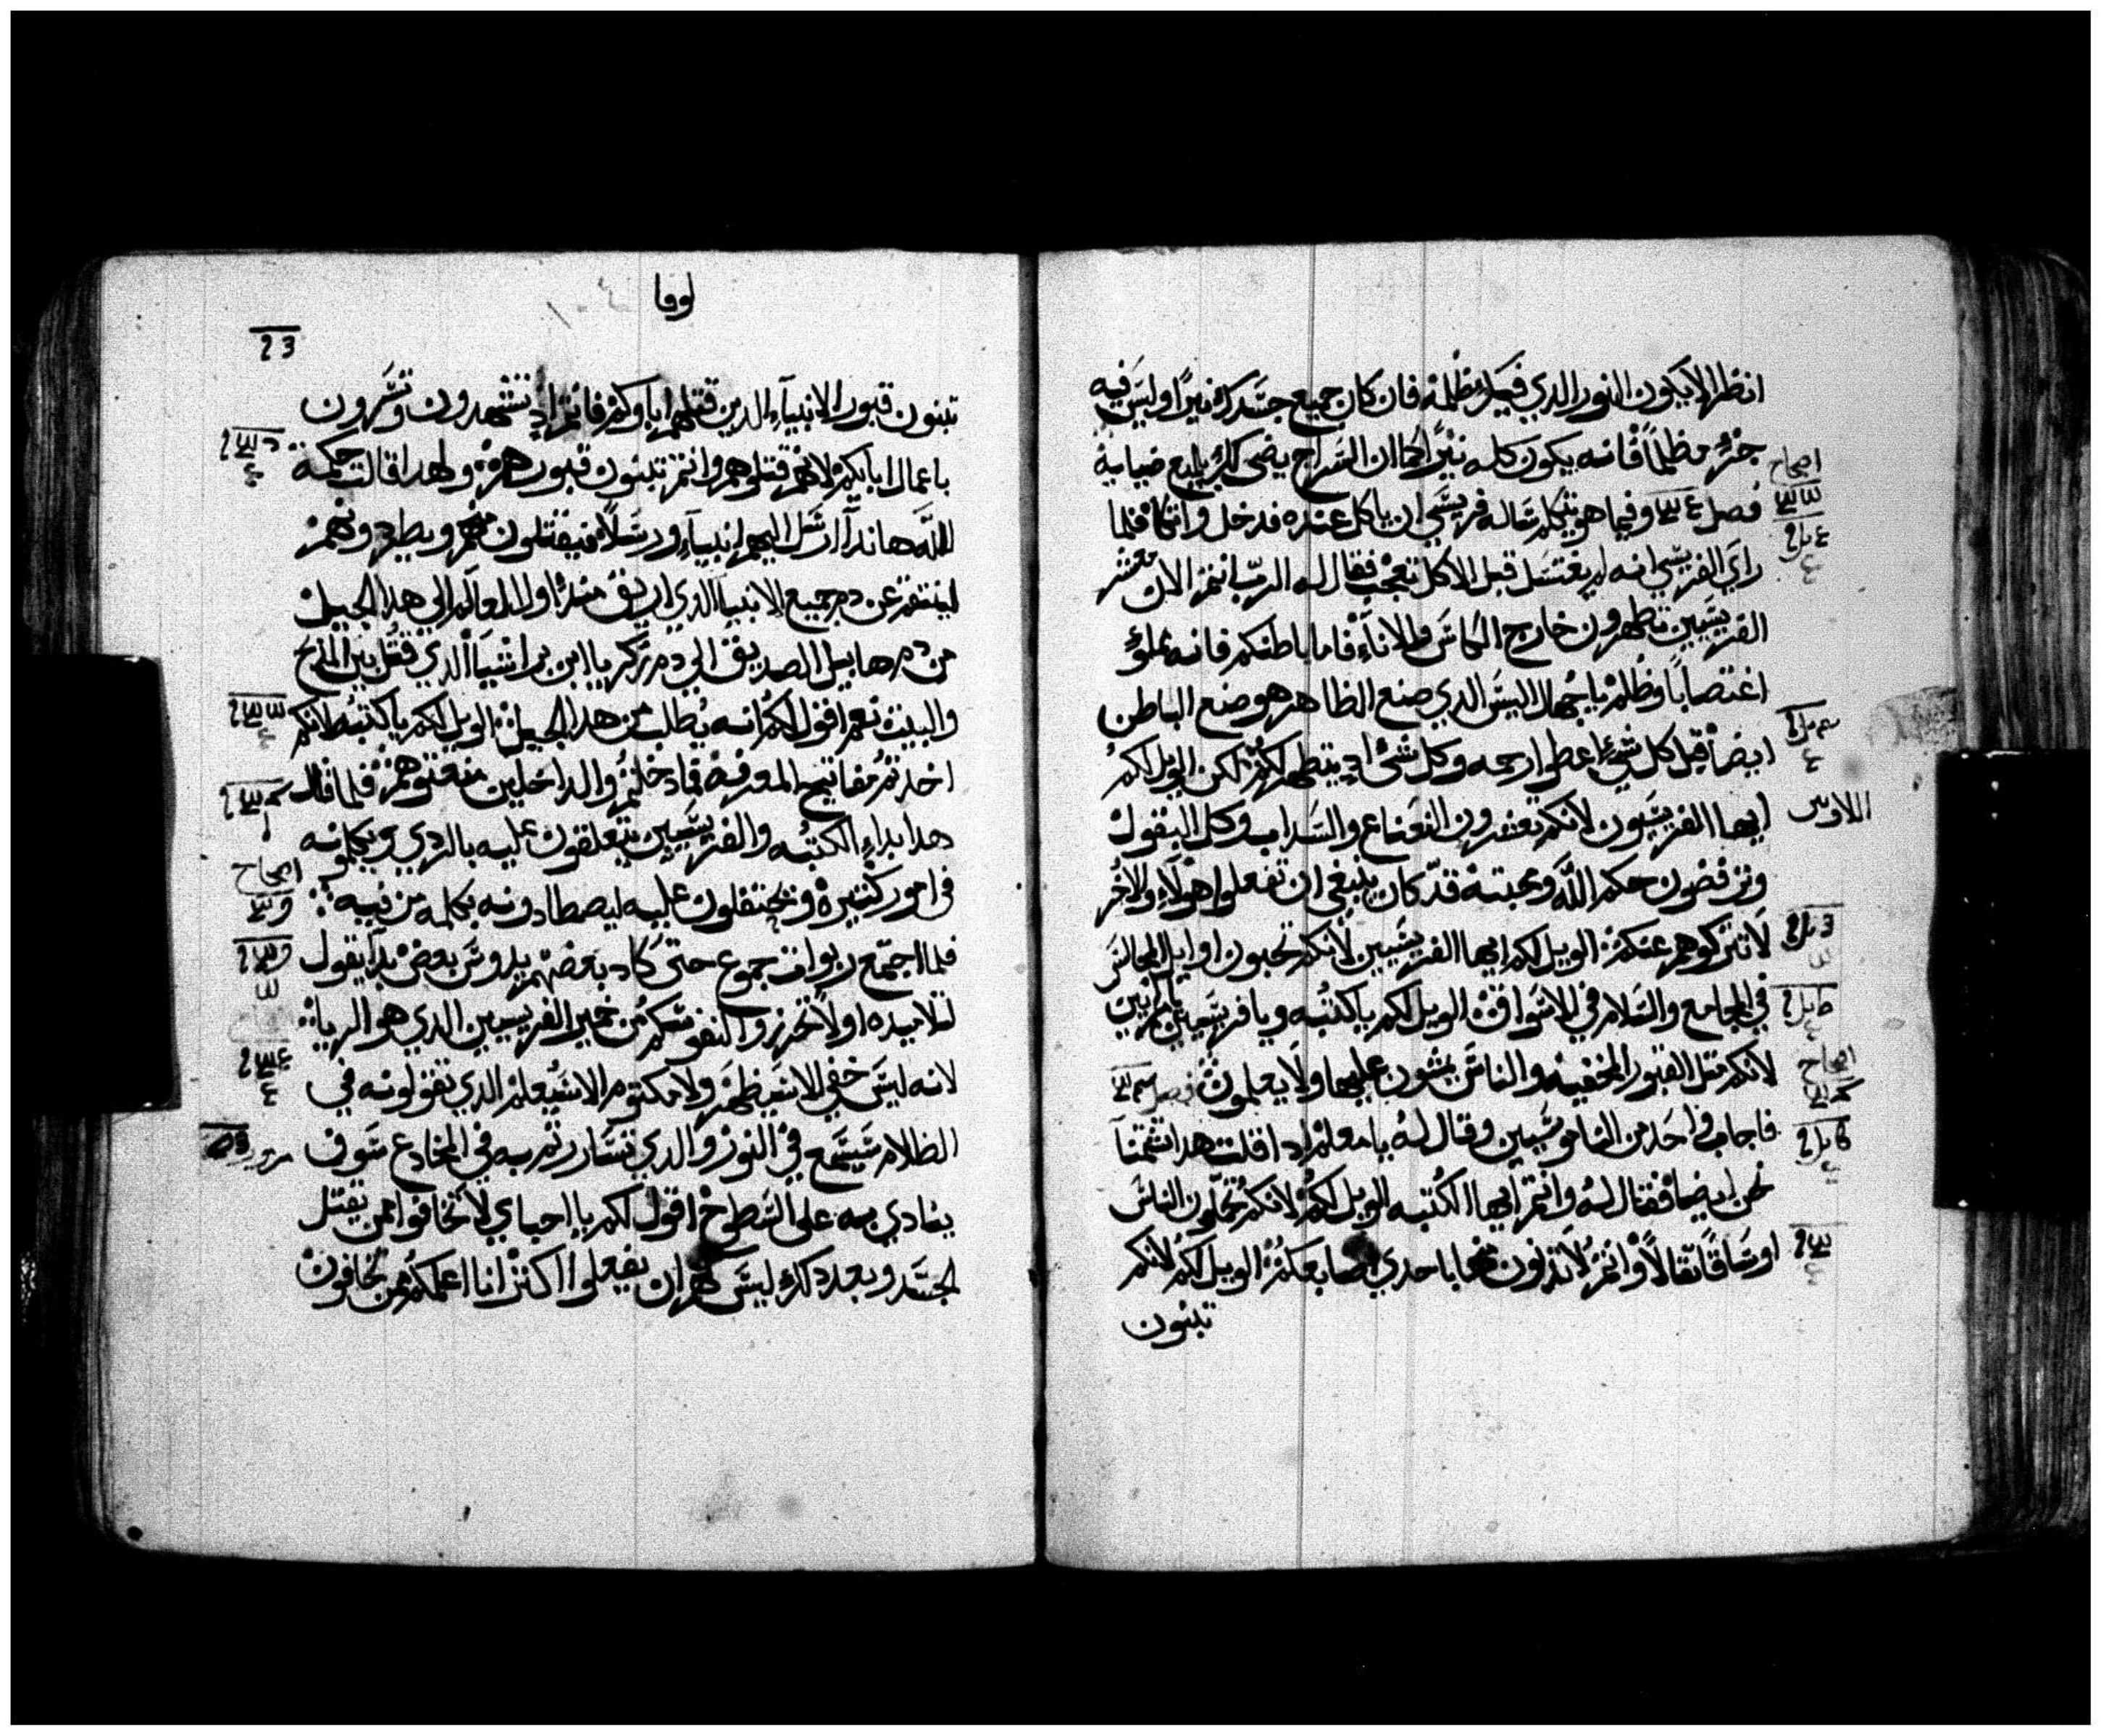 انظر لا يكون النور الذي فيك ظلمة فان كان جميع جسدك نيرًا وليس فيه
جزءٌ مظلماً فانه يكون كله نيرًا كما ان السراج يضي لك بلمع ضيايه
اصحاح
فصل وفيما هو يتكلم ساله فريسي ان ياكل عنده فدخل واتكا فلما
راي الفريسي انه لم يغتسل قبل الاكل تعجب فقال له الرب انتم الان معشر
الفريسيين تطهرون خارج الكاس والاناء فاما باطنكم فانه مملوٌ
اغتصاباً وظلم يا جهال اليس الدي صنع الظاهر هو صنع الباطن
ايضاً قبل كل شيءٍ اعطوا رحمه وكل شيء يتطهر لكم لكن الويل لكم
ايها الفريسيون لانكم تعشرون النعناع والسداب وكل البقول
وترفضون حكم الله ومحبته قد كان ينبغي ان تفعلوا هولاء والاخر
لا تتركوهم عنكم الويل لكم ايها الفريسيين لانكم تحبون اوايل المجالس
في المجامع والسلام في الاسواق الويل لكم يا كتبه ويا فريسيين يا مرايين
اصحاح
لانكم متل القبور المخفيه والناس يمشون عليها ولا يعلمون فصل
فاجاب واحد من الناموسيين وقال له يا معلم اد اقلت هدا شتمتنا
نحن ايضا فقال له وانتم ايها الكتبه الويل لكم لانكم تحملون الناس
اوساقًا تقالاً وانتم لا تدنون منها باحدي اصابعكم الويل لكم لانكم
تبنون
لوقا
تبنون قبور الانبياء الدين قتلهم اباوكم فانتم اد تشهدون وتسرون
باعمال ابايكم لانهم قتلوهم وانتم تبنون قبورهم ولهدا قالت حكمة
الله هاندا ارسل اليهم انبياء ورسلاً فيقتلون منهم ويطردونهم
لينتقم عن دم جميع الانبيا الدي اريق مند اول العالم الي هدا الجيل
من دم هابيل الصديق الي دم زكريا ابن براشيا الدي قتل بين المدبح
والبيت نعم اقول لكم انه يطلب من هدا الجيل الويل لكم يا كتبه لانكم
اخدتم مفاتيح المعرفه فما دخلتم والداخلين منعتوهم فلما قال
هدا بداء الكتبه والفريسيين يتعلقون عليه بالردي ويكلمونه
اصحاح
في امور كتيره ويحتفلون عليه ليصطادونه بكلمه من فيه
فلما اجتمع ربوات جموع حتى كاد بعضهم يدوس بعض بدا يقول
لتلاميده اولاً تحرزوا لنفوسكم من خمير الفريسيين الدي هو الريا
لانه ليس خفي الا سيظهر ولا مكتوم الا سيعلم الدي تقولونه في
الظلام سيسمع في النور والدي تساررتم به في المخادع سوف
ينادي به علي السطوح اقول لكم يا احباي لا تخافوا ممن يقتل
الجسد وبعد دلك ليس لهم ان يفعلوا اكتر انا اعلمكم ممن تخافون